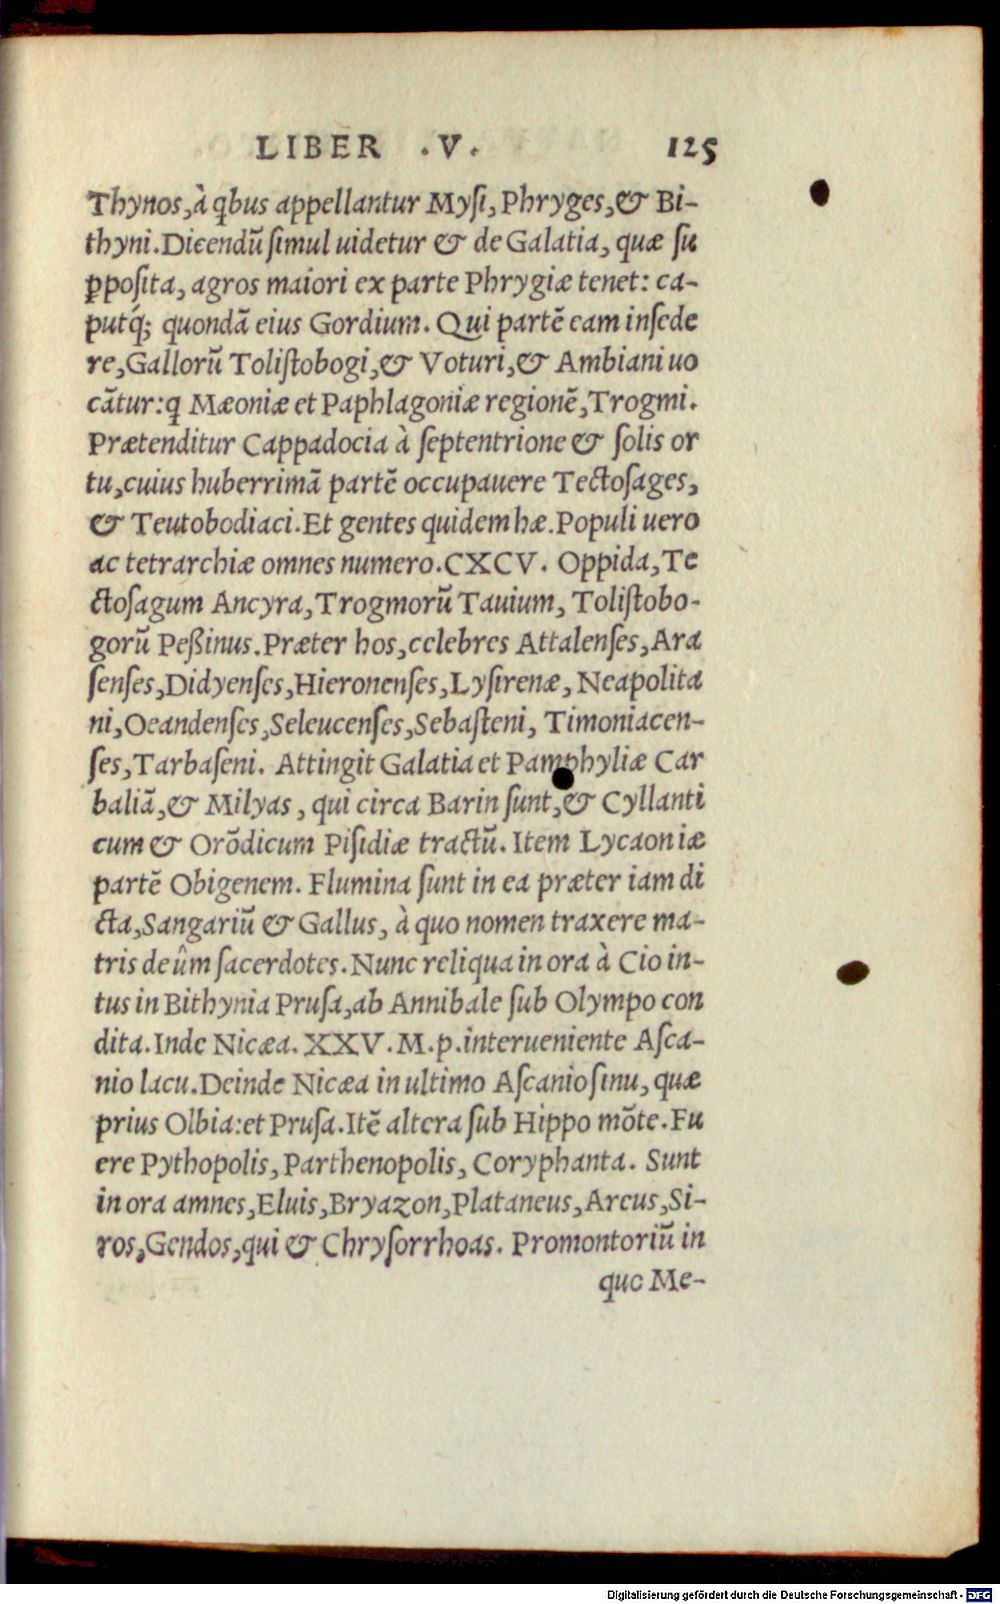 LIBER .V. 125
Thynos, à q̃bus appellantur Mysi, Phryges, & Bi-
thyni. Dicendũ simul uidetur & de Galatia, quæ su
ꝑposita, agros maiori ex parte Phrygiæ tenet: ca-
putq́; quondã eius Gordium. Qui partẽ eam insede
re, Gallorũ Tolistobogi, & Voturi, & Ambiani uo
cãtur: q̃ Mæoniæ et Paphlagoniæ regionẽ, Trogmi.
Prætenditur Cappadocia à septentrione & solis or
tu, cuius huberrimã partẽ occupauere Tectosages,
& Teutobodiaci. Et gentes quidem hæ. Populi uero
ac tetrarchiæ omnes numero. CXCV. Oppida, Te
ctosagum Ancyra, Trogmorũ Tauium, Tolistobo-
gorũ Peßinus. Præter hos, celebres Attalenses, Ara
senses, Didyenses, Hieronenses, Lysirenæ, Neapolita
ni, Oeandenses, Seleucenses, Sebasteni, Timoniacen-
ses, Tarbaseni. Attingit Galatia et Pamphyliæ Car
baliã, & Milyas, qui circa Barin sunt, & Cyllanti
cum & Orõdicum Pisidiæ tractũ. Item Lycaoniæ
partẽ Obigenem. Flumina sunt in ea præter iam di
cta, Sangariũ & Gallus, à quo nomen traxere ma-
tris deûm sacerdotes. Nunc reliqua in ora à Cio in-
tus in Bithynia Prusa, ab Annibale sub Olympo con
dita. Inde Nicæa. XXV. M. p. interueniente Asca-
nio lacu. Deinde Nicæa in ultimo Ascanio sinu, quæ
prius Olbia: et Prusa. Itẽ altera sub Hippo mõte. Fu
ere Pythopolis, Parthenopolis, Coryphanta. Sunt
in ora amnes, Eluis, Bryazon, Plataneus, Areus, Si-
ros, Gendos, qui & Chrysorrhoas. Promontoriũ in
quo Me-
Digitalisierung gefördert durch die Deutsche Forschungsgemeinschaft - DFG